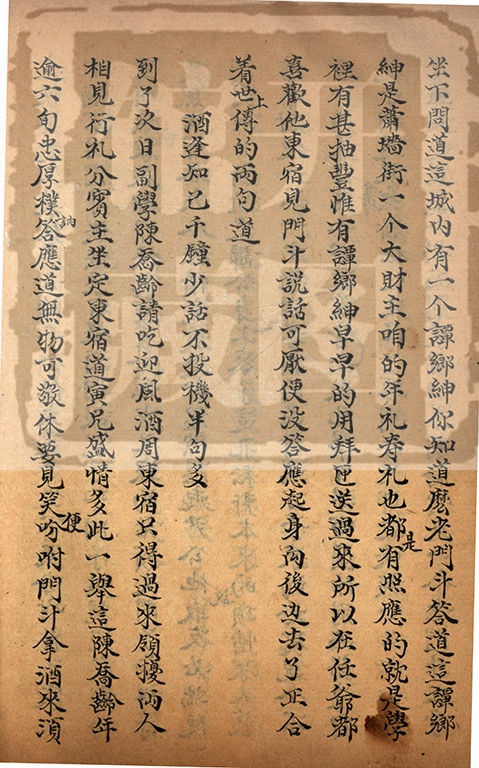 坐下問道這城内有一个譚鄉紳你知道麽老門斗答道這譚鄉
紳是蕭墻街一个大財主咱的年礼寿礼也都是有照應的就是學
裡有甚抽豐惟有譚鄉紳早早的用拜匣送過來所以在任爺都
喜歡他東宿見門斗説話可厭便没答應起身向後边去了正合
着世上傳的兩句道
酒逢知己千鐘少話不投機半句多
到了次日副學陳喬齡請吃迎風酒周東宿只得過來領擾兩人
相見行礼分賓主坐定東宿道寅兄盛情多此一舉這陳喬齡年
逾六旬忠厚樸訥答應道無物可敬休要見笑便吩咐門斗拿酒來須